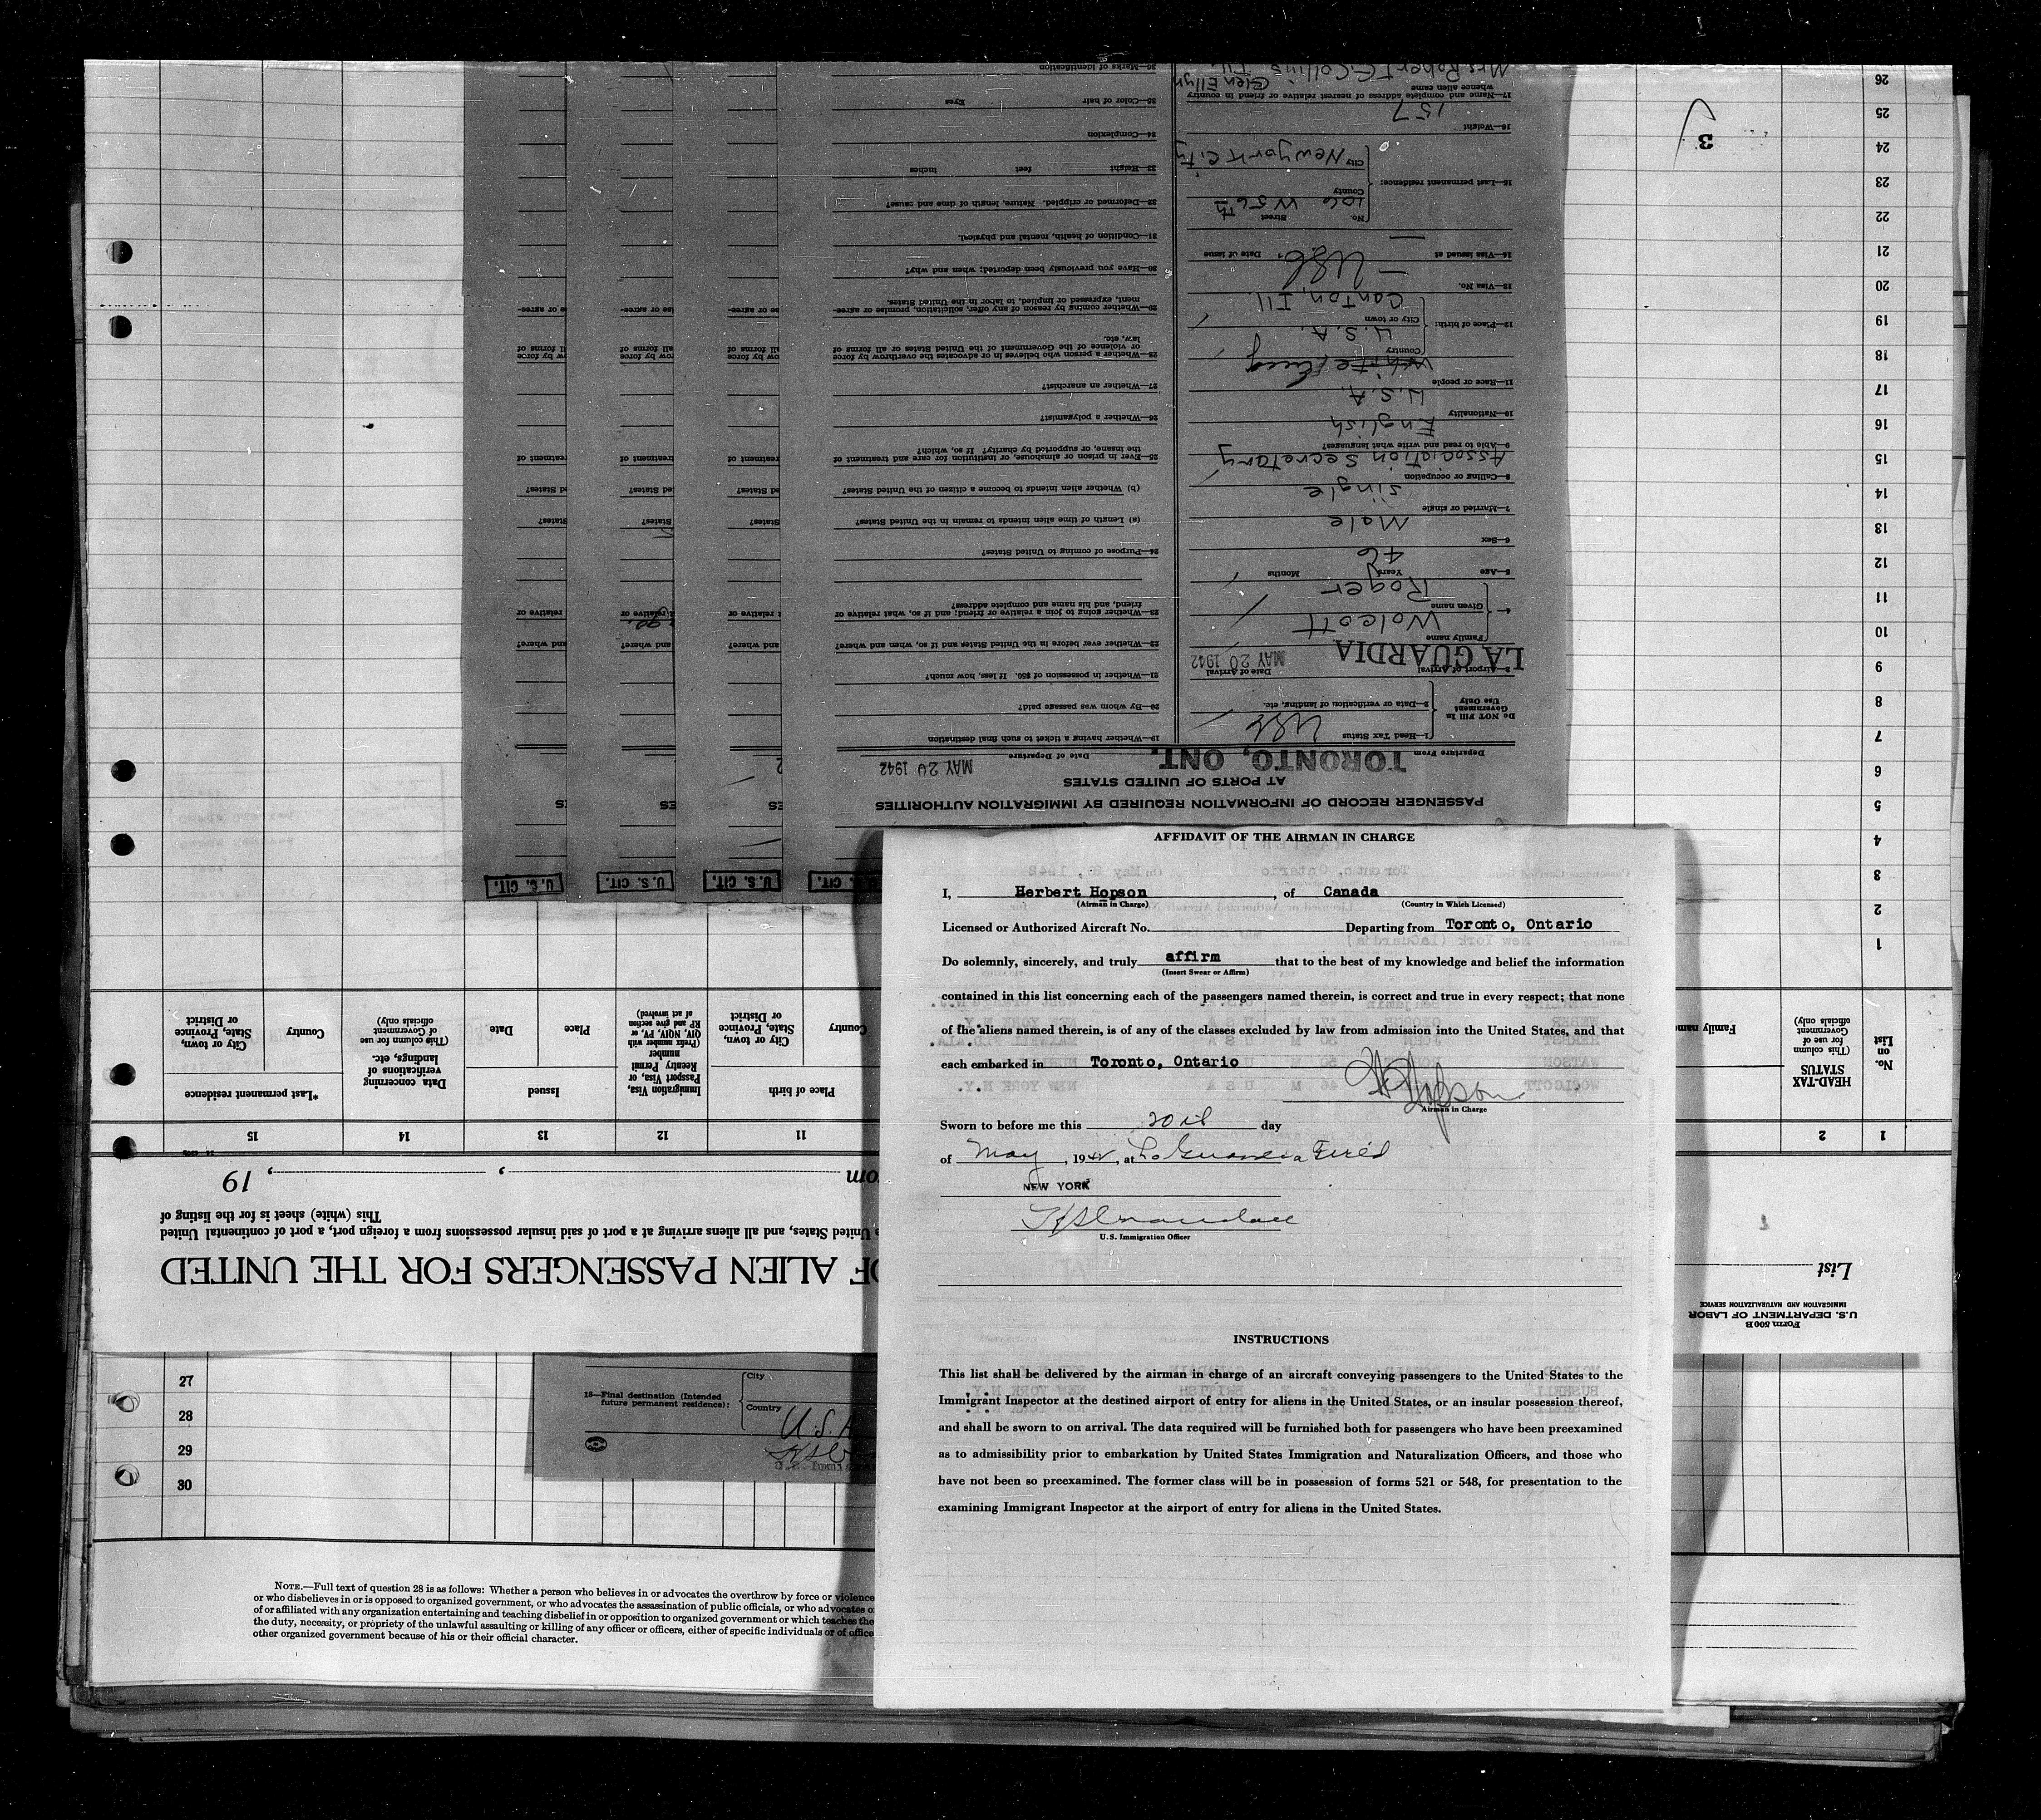 AFFIDAVIT OF THE AIRMAN IN CHARGE
I, Herbert Hopson, of Canada
(Airman in Charge) (Country in Which Licensed)
Licensed or Authorized Aircraft No. Departing from Toronto, Ontario
Do solemnly, sincerely, and truly affirm that to the best of my knowledge and belief the information
(Insert Swear or Affirm)
contained in this list concerning each of the passengers named therein, is correct and true in every respect; that none
of the aliens named therein, is of any of the classes excluded by law from admission into the United States, and that
each embarked in Toronto, Ontario
H Hopson
Airman in Charge
Sworn to before me this 20th day
of May, 1942, at La Guardia Field
NEW YORK
U.S. Immigration Officer
INSTRUCTIONS
This list shall be delivered by the airman in charge of an aircraft conveying passengers to the United States to the
Immigrant Inspector at the destined airport of entry for aliens in the United States, or an insular possession thereof,
and shall be sworn to on arrival. The data required will be furnished both for passengers who have been preexamined
as to admissibility prior to embarkation by United States Immigration and Naturalization Officers, and those who
have not been so preexamined. The former class will be in possession of forms 521 or 548, for presentation to the
examining Immigrant Inspector at the airport of entry for aliens in the United States.
27
28
29
30
18—Final destination (Intended
future permanent residence):
City
Country
U.S.A
NOTE.—Full text of question 28 is as follows: Whether a person who believes in or advocates the overthrow by force or violence
or who disbelieves in or is opposed to organized government, or who advocates the assassination of public officials, or who advocates o
of or affiliated with any organization entertaining and teaching disbelief in or opposition to organized government or which teaches the
the duty, necessity, or propriety of the unlawful assaulting or killing of any officer or officers, either of specific individuals or of office
other organized government because of his or their official character.
Form 500B
U.S. DEPARTMENT OF LABOR
IMMIGRATION AND NATURALIZATION SERVICE
List
OF ALIEN PASSENGERS FOR THE UNITED
United States, and all aliens arriving at a port of said insular possessions from a foreign port, a port of continental United
This (white) sheet is for the listing of
om , , 19
1 2 11 12 13 14 15
No.
on
List
HEAD-TAX
STATUS
(This column
for use of
Government
officials
only)
Family name
Place of birth
Country
City or town,
State, Province
or District
Immigration Visa,
Passport Visa, or
Reentry Permit
number
(Prefix number with
QIV, NQIV, PV, or
RP and give section
of act involved)
Issued
Place
Date
Data concerning
verifications of
landings, etc.
(This column for use
of Government
officials only)
*Last permanent residence
Country
City or town,
State, Province
or District
1
2
3
4
5
6
7
8
9
10
11
12
13
14
15
16
17
18
19
20
21
22
23
24
25
26
3
U. S. CIT.
U. S. CIT.
U. S. CIT.
U. S. CIT.
PASSENGER RECORD OF INFORMATION REQUIRED BY IMMIGRATION AUTHORITIES
AT PORTS OF UNITED STATES
Departure From TORONTO, ONT. Date of Departure MAY 20 1942
Do NOT Fill In
Government
Use Only
1—Head Tax Status USC
2—Data or verification of landing, etc.
3—Airport of Arrival LA GUARDIA Date of Arrival MAY 20 1942
4— Family name Wolcott
Given name Roger
5—Age Years 46 Months
6—Sex Male
7—Married or single Single
8—Calling or occupation Association Secretary
9—Able to read and write what languages? English
10—Nationality U.S.A.
11—Race or people White
12—Place of birth: Country U.S.A.
City or town Canton, Ill.
13—Visa No.
14—Visa issued at USC. Date of issue
15—Last permanent residence: No. Street 106 W 56th
County
City New York City
16—Weight 157
17—Name and complete address of nearest relative or friend in country
whence alien came
Mrs. Robert E. Collins Glen Ellyn Ill.
19—Whether having a ticket to such final destination
20—By whom was passage paid?
21—Whether in possession of $50. If less, how much?
22—Whether ever before in the United States and if so, when and where?
23—Whether going to join a relative or friend; and if so, what relative or
friend, and his name and complete address?
24—Purpose of coming to United States?
(a) Length of time alien intends to remain in the United States?
(b) Whether alien intends to become a citizen of the United States?
25—Ever in prison or almshouse, or institution for care and treatment of
the insane, or supported by charity? If so, which?
26—Whether a polygamist?
27—Whether an anarchist?
28—Whether a person who believes in or advocates the overthrow by force
or violence of the Government of the United States or all forms of
law, etc.
29—Whether coming by reason of any offer, solicitation, promise or agree-
ment, expressed or implied, to labor in the United States.
30—Have you previously been deported; when and why?
31—Condition of health, mental and physical.
32—Deformed or crippled. Nature, length of time and cause?
33—Height feet inches
34—Complexion
35—Color of hair Eyes
36—Marks of identification